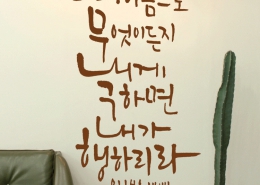 이름으로
무엇이든지
내게
구하면
내가
행하리라